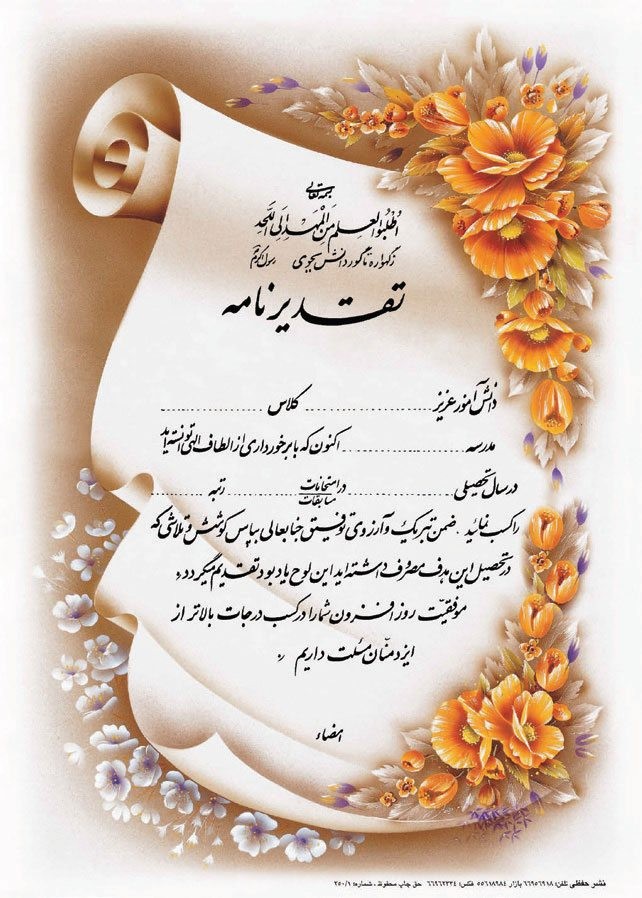 بسمه تعالی
اُطْلُبُوا العِلمَ مِنَ الْمَهْدِ اِلَی اللَّحَدِ
زگهواره تا گور دانش بجوی رسول اکرم
تقدیرنامه
دانش آموز عزیز .......................... کلاس ..........................
مدرسه .......................... اکنون که با برخورداری از الطاف الهی توانسته اید
در سال تحصیلی .......................... در امتحانات رتبه ..................
مسابقات
را کسب نمائید . ضمن تبریک و آرزوی توفیق جنابعالی بپاس کوشش و تلاشی که
در تحصیل این هدف مصروف داشته اید این لوح یادبود تقدیم میگردد
موفقیّت روز افزون شما را در کسب درجات بالاتر از
ایزد منّان مسئلت داریم
امضاء
نشر حفظی تلفن: ۶۶۹۵۶۹۱۸ بازار ۵۵۶۱۸۹۸۴ فکس: ۶۶۹۶۲۳۳۴ حق چاپ محفوظ ، شماره: ۲۵۰/۱